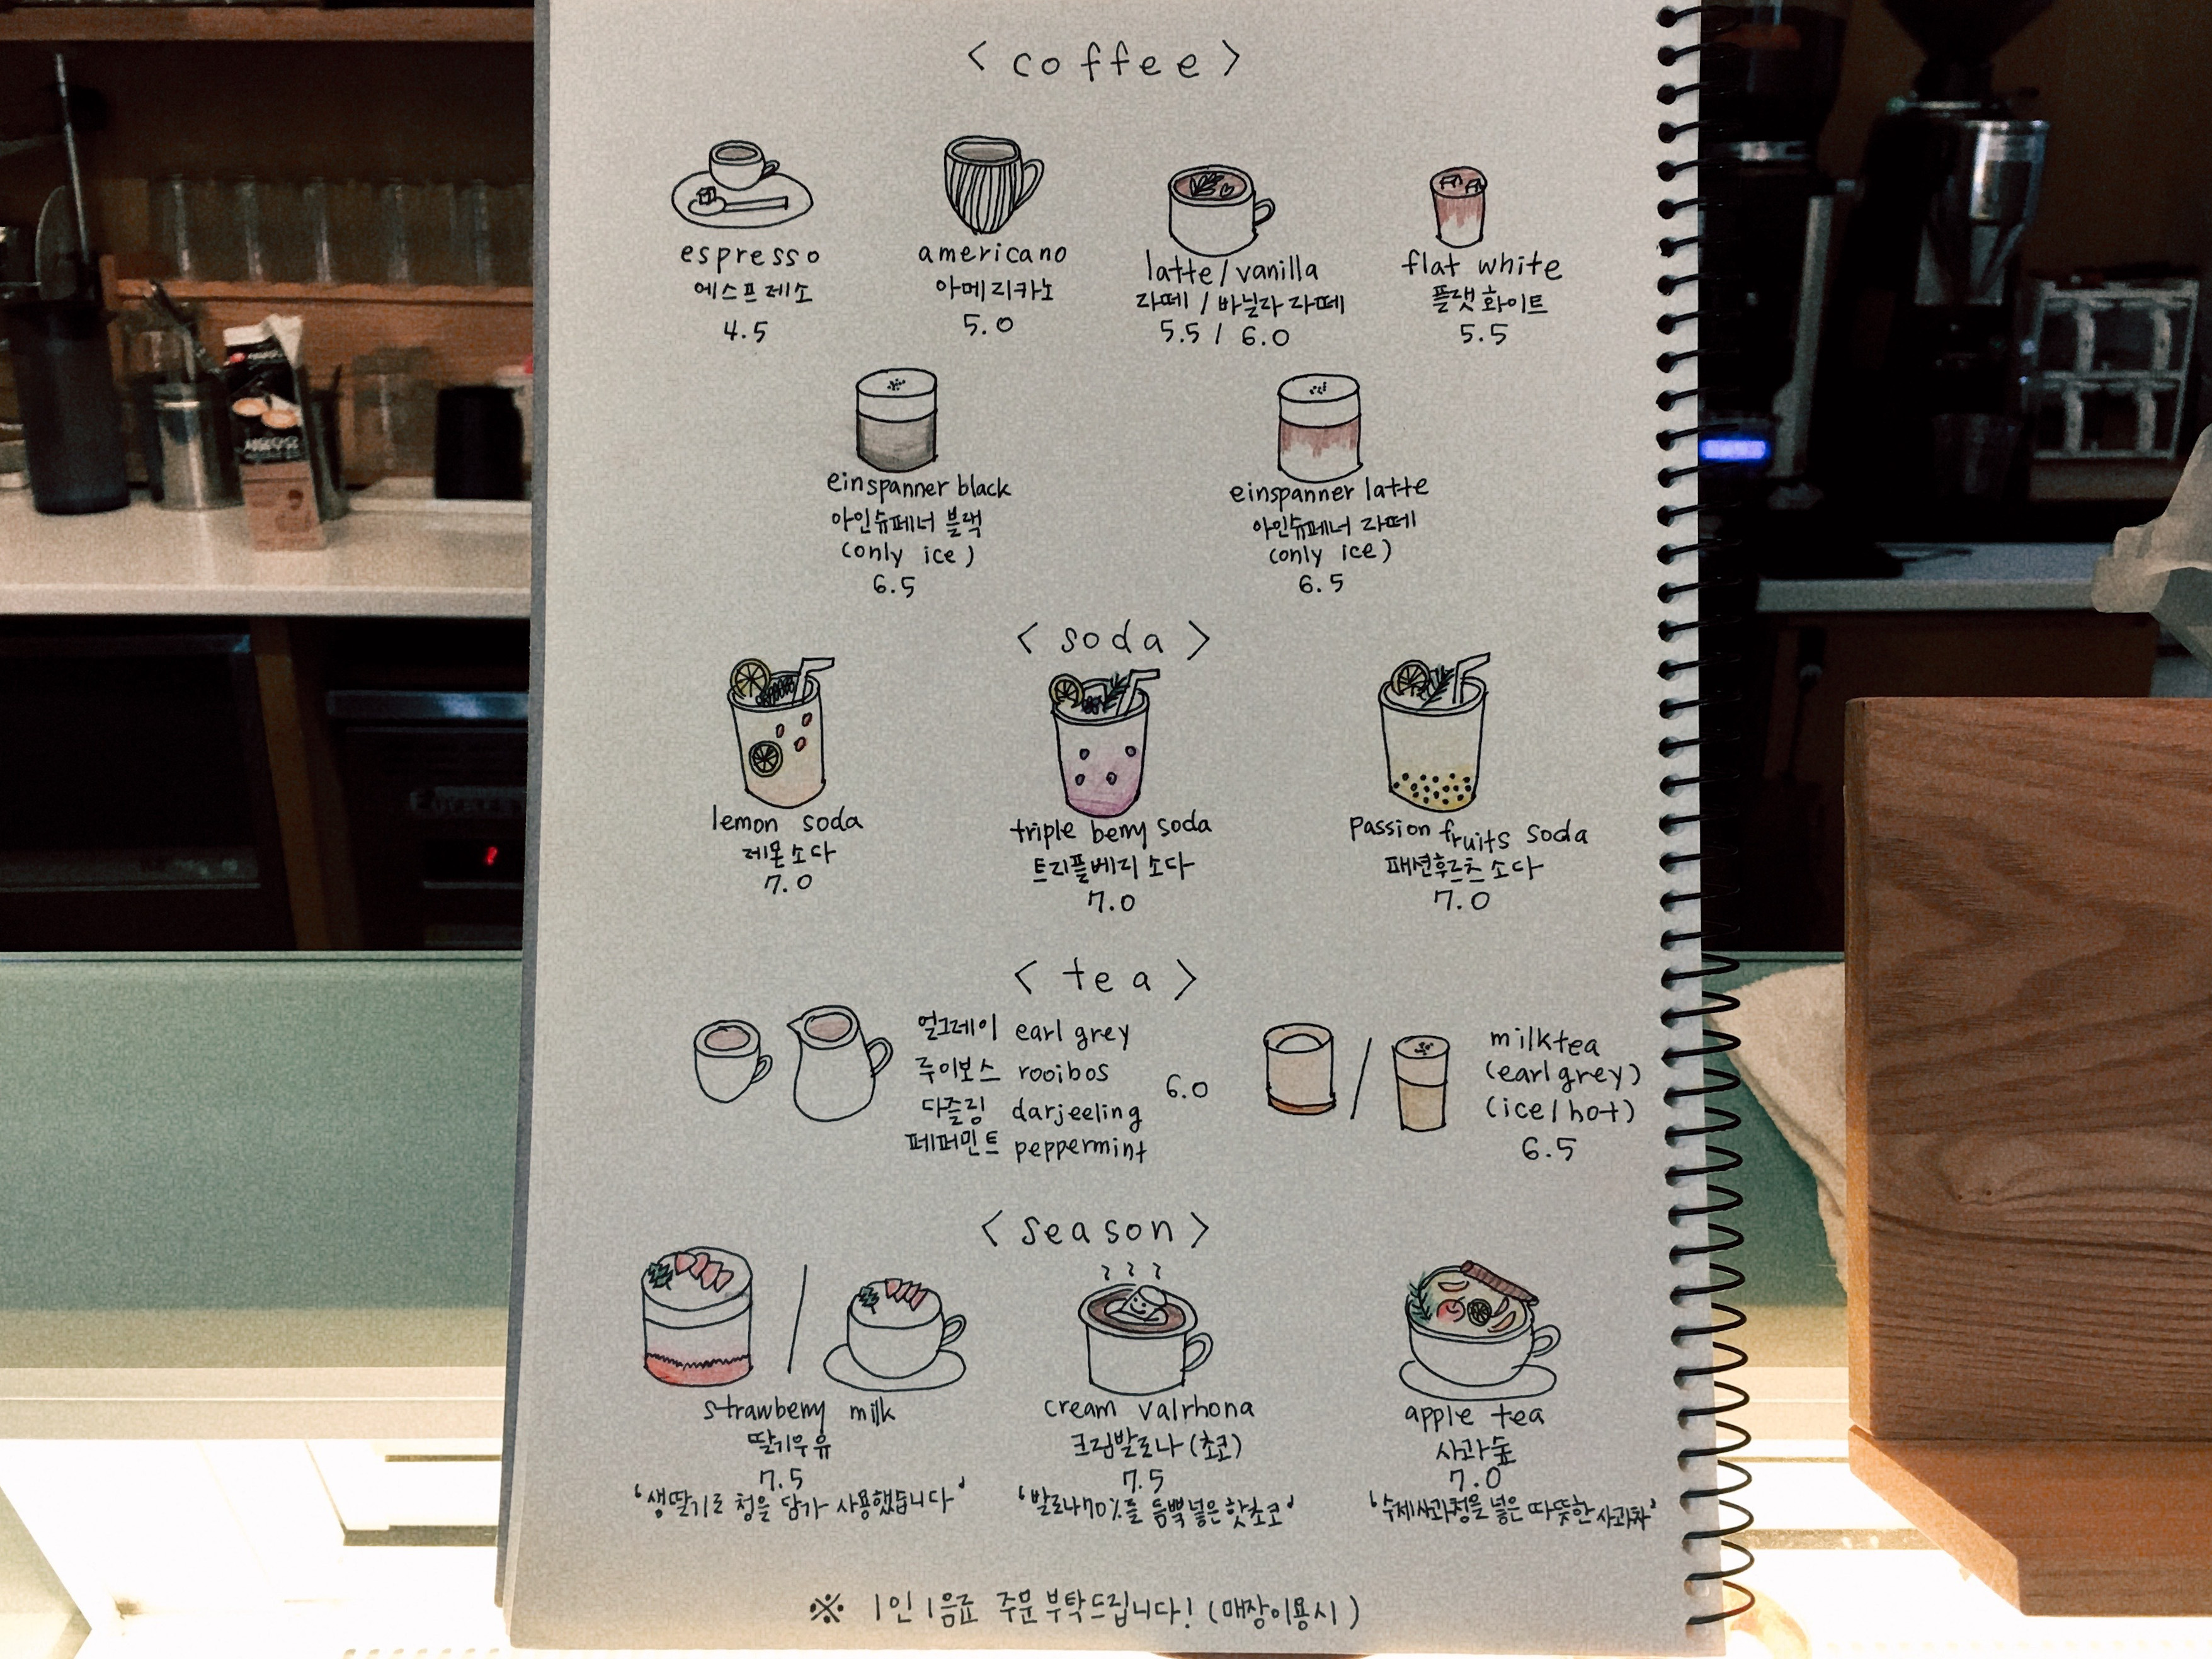 < coffee >
espresso
에스프레소
4.5
americano
아메리카노
5.0
latte/vanilla
라떼 / 바닐라 라떼
5.5 / 6.0
flat white
플랫 화이트
5.5
einspanner black
아인슈페너 블랙
(only ice)
6.5
einspanner latte
아인슈페너 라떼
(only ice)
6.5
< soda >
lemon soda
레몬소다
7.0
triple berry soda
트리플베리 소다
7.0
passion fruits soda
패션후르츠 소다
7.0
< tea >
얼그레이 earl grey
루이보스 rooibos
다즐링 darjeeling
페퍼민트 peppermint
6.0
milktea
(earl grey)
(ice/hot)
6.5
< season >
strawberry milk
딸기우유
7.5
'생딸기로 청을 담가 사용했습니다'
cream valrhona
크림발로나 (초코)
7.5
'발로나70%를 듬뿍넣은 핫초코'
apple tea
사과숲
7.0
'수제사과청을 넣은 따뜻한 사과차'
※ 1인 1음료 주문 부탁드립니다! (매장이용시)